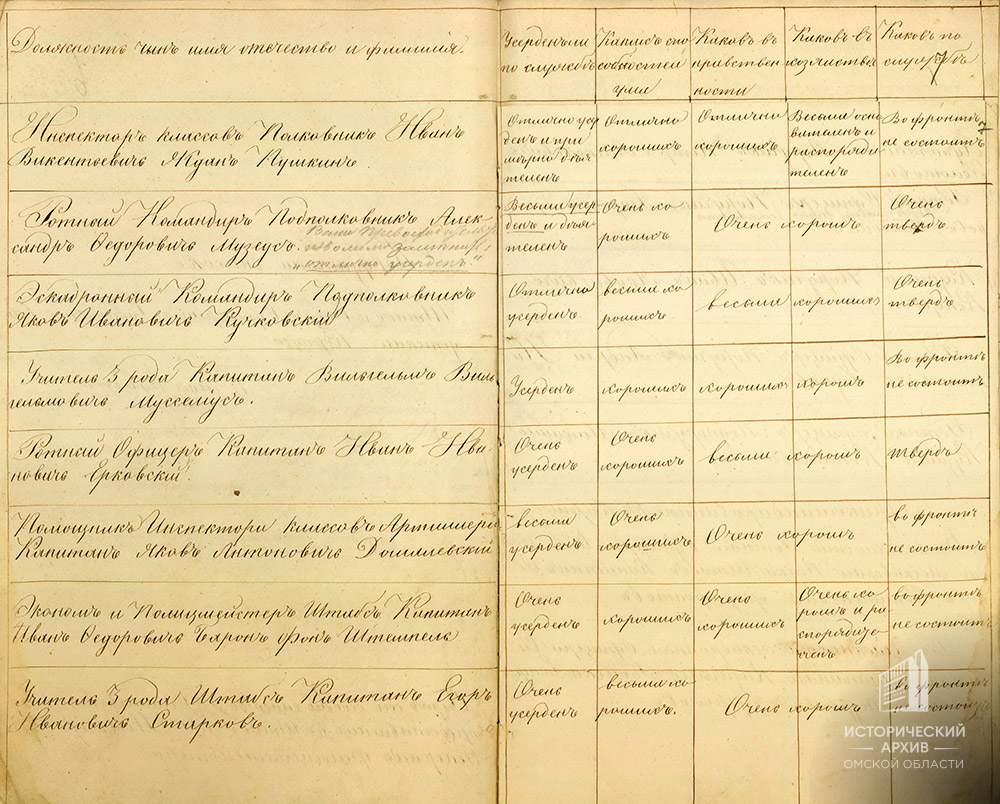 Должность чинъ имя отечество и фамилія.
Усерденъ ли
по службѣ
Какихъ спо
собностей
ума
Каковъ въ
нравствен
ности
Каковъ въ
хозяйствѣ
Каковъ по
службѣ
7
Инспекторъ классовъ Полковникъ Иванъ
Викентьевичъ Жданъ Пушкинъ.
Отлично усер
денъ и при
мѣрно дѣя
теленъ
Отлично
хорошихъ
Отлично
хорошихъ
Весьма осно
вателенъ и
распоряди
теленъ
Во фронтѣ
не состоитъ
Ротный Командиръ Подполковникъ Алек-
сандръ Ѳедоровичъ Музеусъ.
"отлично усерденъ."
Весьма усер
денъ и дѣя
теленъ
Очень хо
рошихъ
Очень хорошъ
Очень
твердъ.
Эскадронный Командиръ Подполковникъ
Яковъ Ивановичъ Кучковскій
Отлично
усерденъ.
весьма хо
рошихъ
весьма хорошихъ
Очень
твердъ
Учитель 3 рода Капитанъ Вильгельмъ Виль
гельмовичъ Муссемусъ.
Усерденъ
хорошихъ
хорошихъ
хорошъ
Во фронтѣ
не состоитъ
Ротный Офицеръ Капитанъ Иванъ Ива-
новичъ Ерковскій.
Очень
усерденъ
Очень
хорошихъ
весьма хорошъ
твердъ
Помощникъ Инспектора классовъ Артиллеріи
Капитанъ Яковъ Антоновичъ Домилевскій
весьма
усерденъ
Очень
хорошихъ
Очень хорошъ
во фронтѣ
не состоитъ
Экономъ и Полицмейстеръ Штабсъ Капитанъ
Иванъ Ѳедоровичъ Баронъ Фонъ Штемпель
Очень
усерденъ
хорошихъ
Очень
хорошихъ
Очень хо
рошъ и ра
во фронтѣ
не состоитъ
Учитель 3 рода Штабсъ Капитанъ Егоръ
Ивановичъ Старковъ.
Очень
усерденъ
весьма хо
рошихъ.
Очень хорошъ
во фронтѣ
не состоитъ
ИСТОРИЧЕСКИЙ
АРХИВ
ОМСКОЙ ОБЛАСТИ